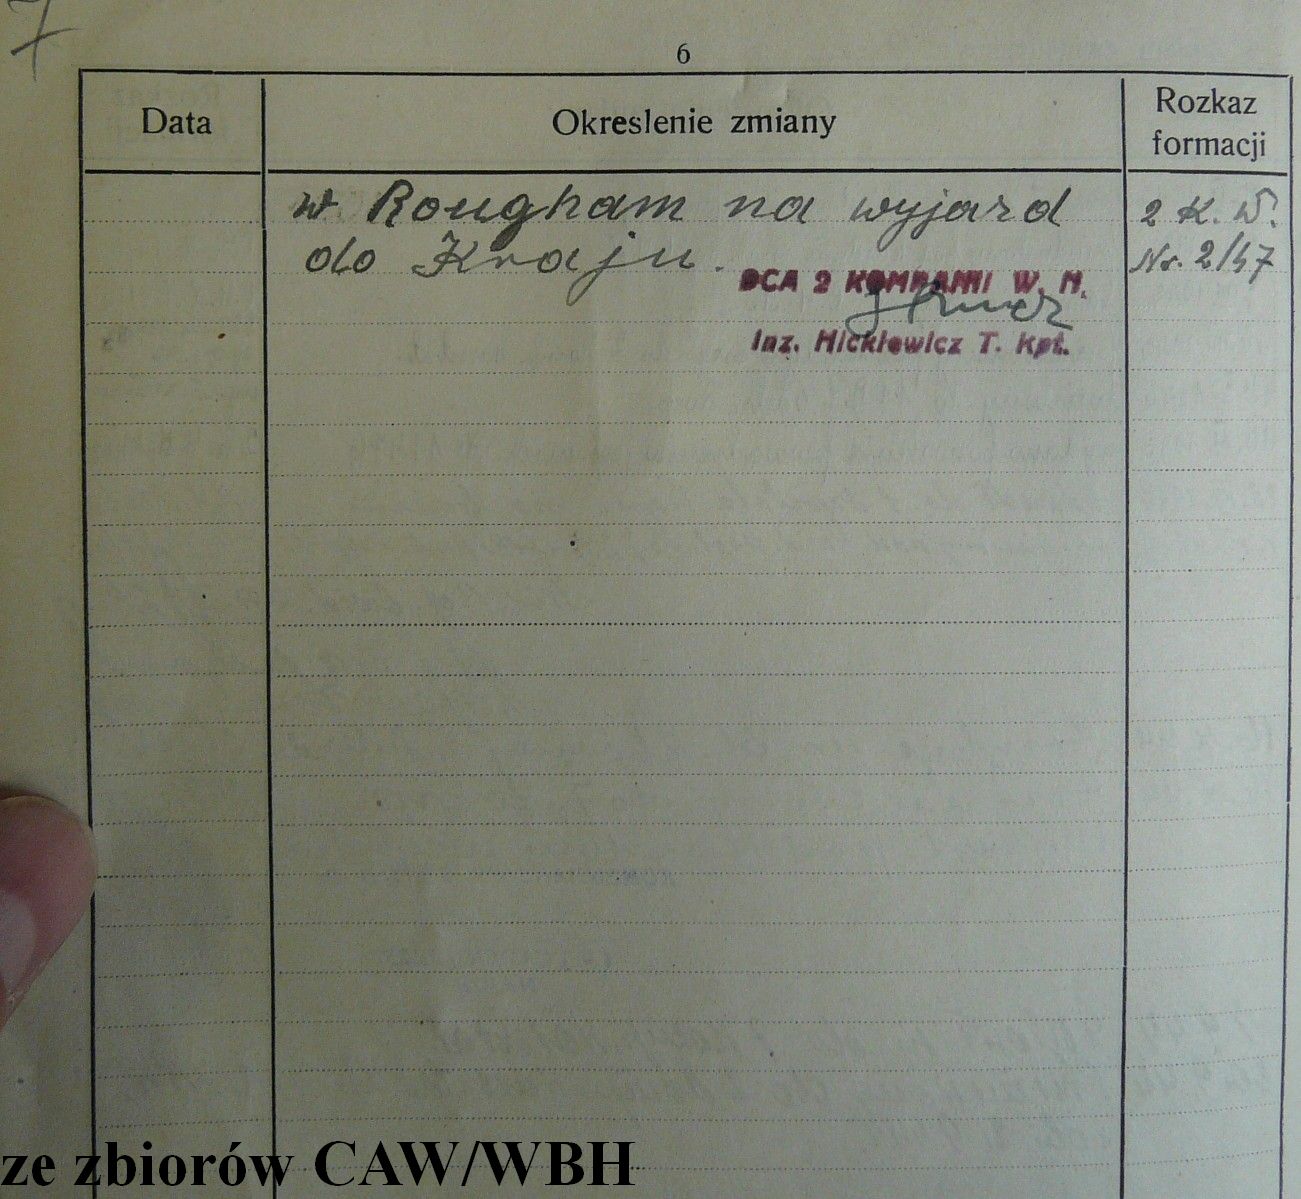 7
6
Data
Okreslenie zmiany
Rozkaz
formacji
w Rougham na wyjazd
2 K. W.
do Kraju.
Nr. 2/47
DCA 2 KOMPANII W. N.
Inz. Mickiewicz T. Kpt.
ze zbiorów CAW/WBH